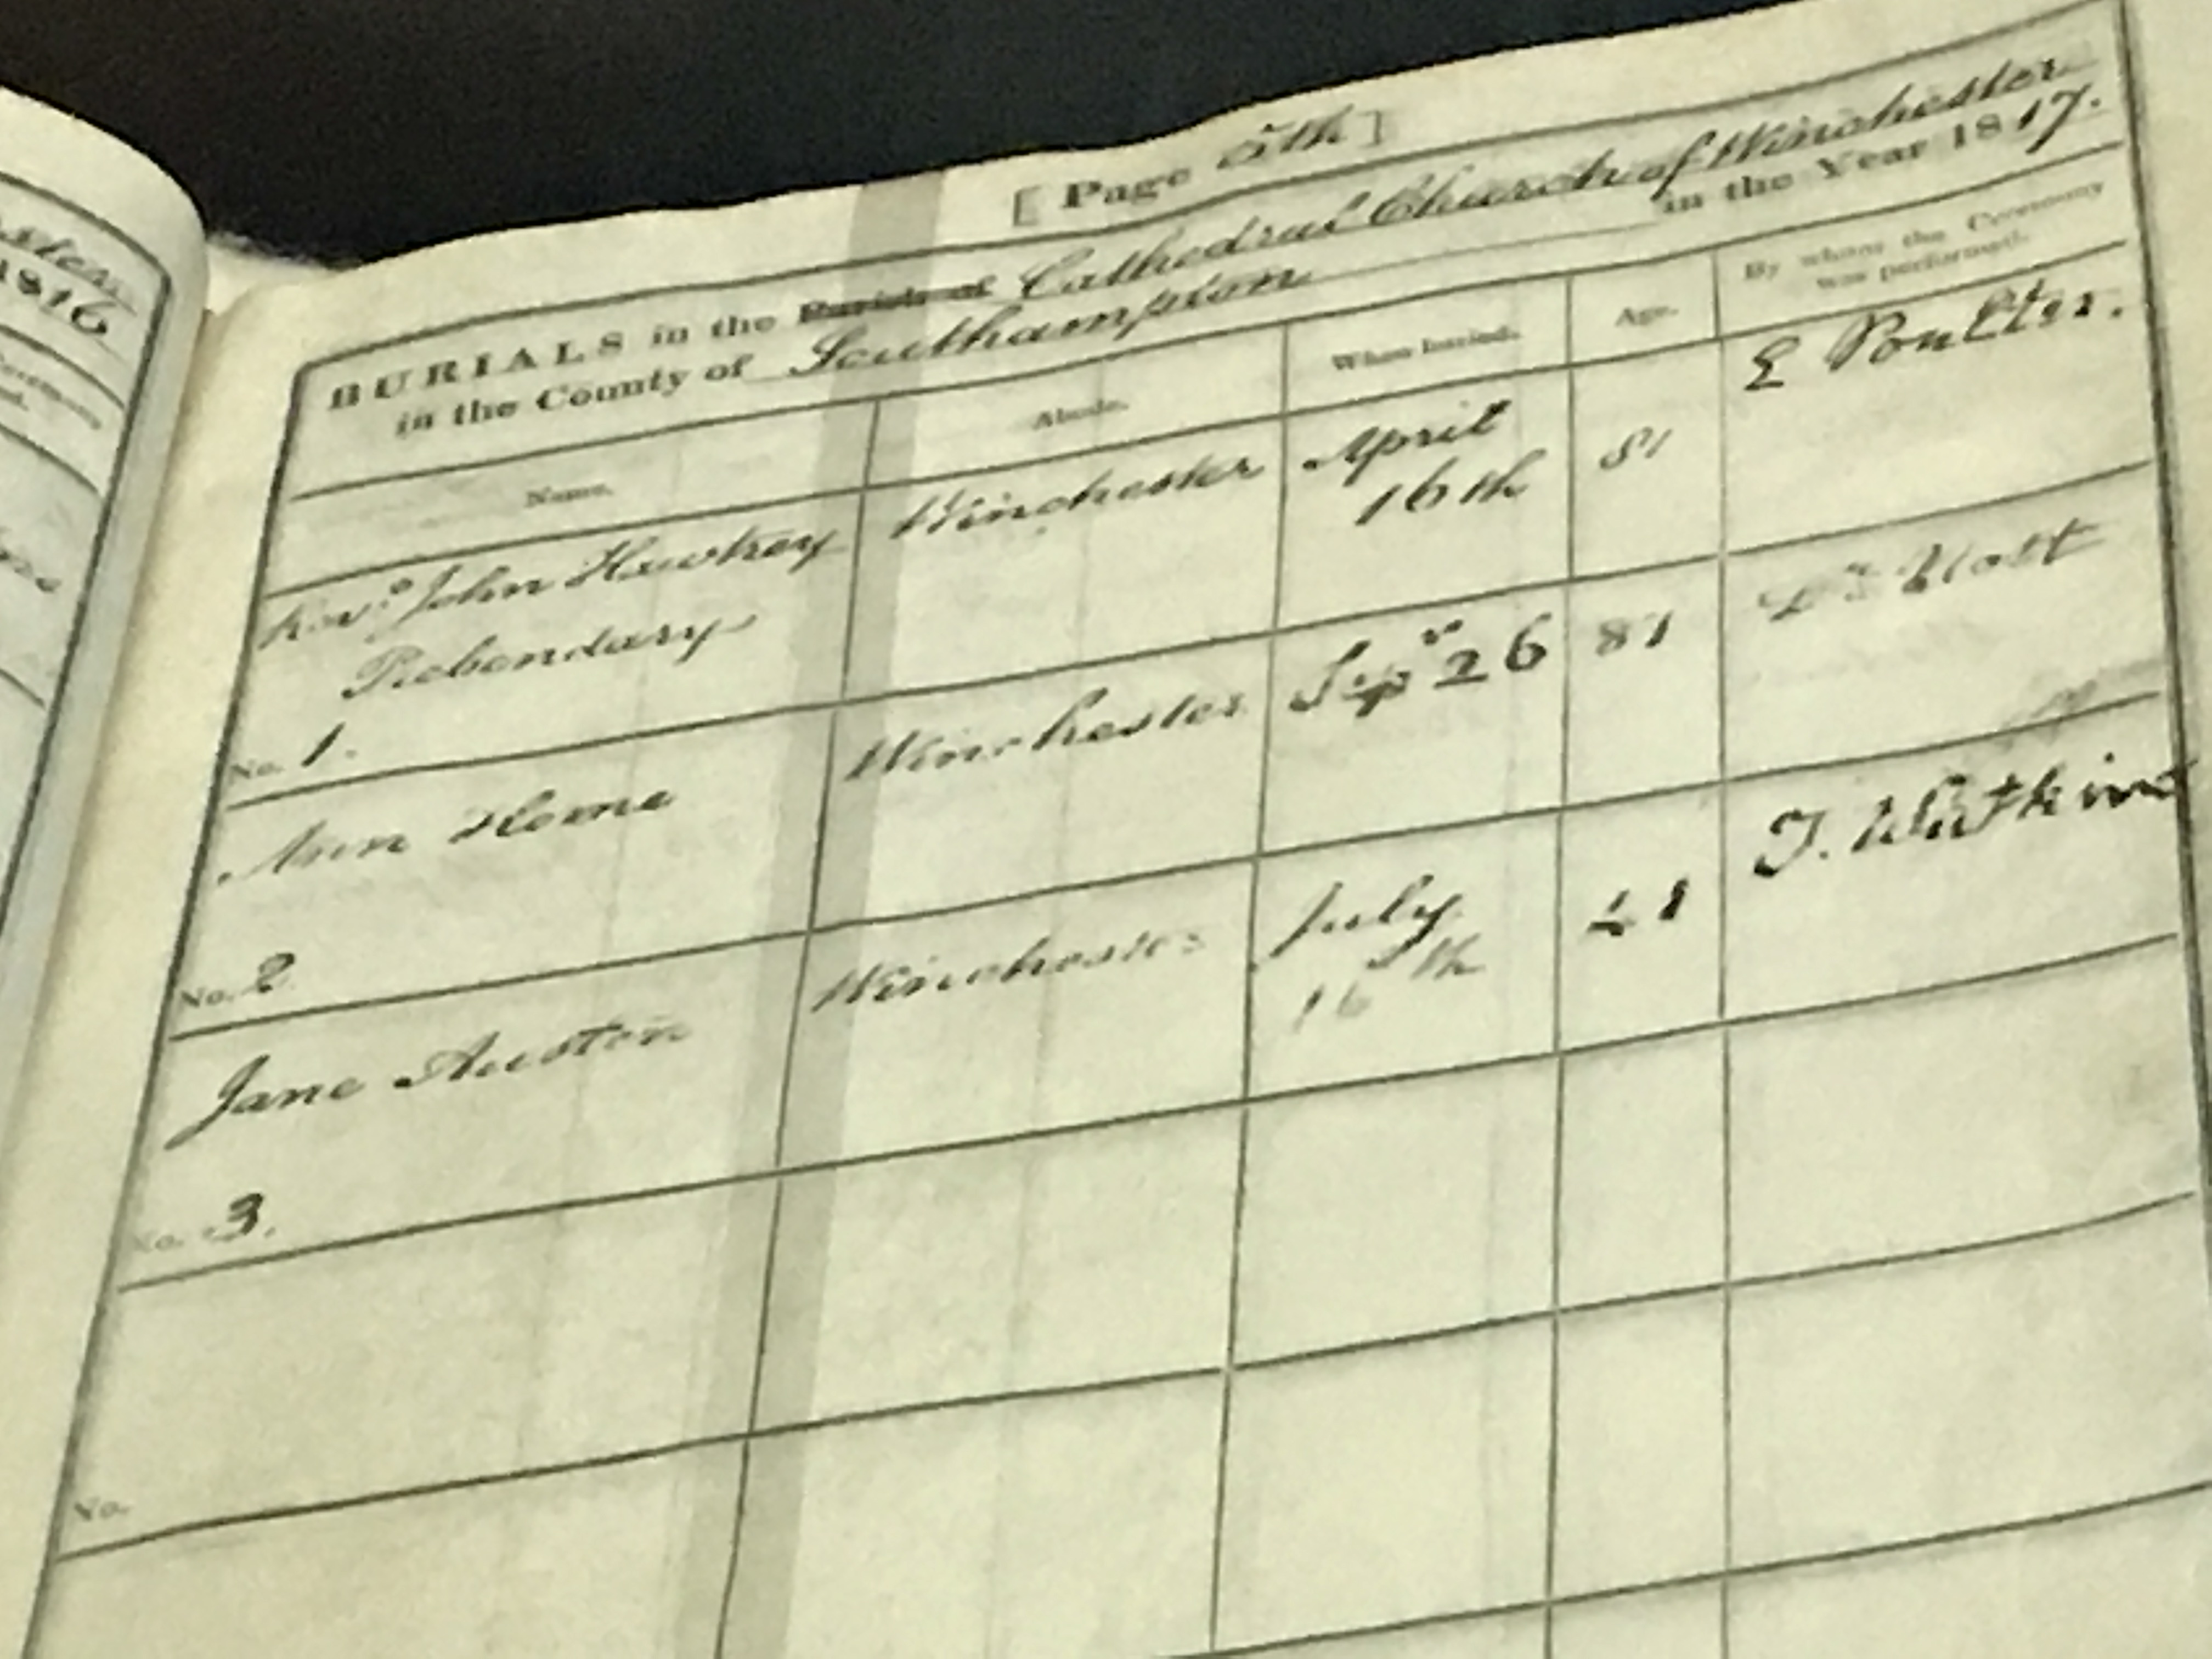 [ Page 5th ]
BURIALS in the Parish of Cathedral Church of Winchester
in the County of Southampton in the Year 1817.
Name. Abode. When buried. Age. By whom the Ceremony was performed.
Revd. John Hawtrey Winchester April 81 E Poulter.
Prebendary 16th
No. 1.
Ann Home Winchester Sepr 26 87 Dr. Nott
No. 2
Jane Austen Winchester July 41 T. Watkins
16th
No. 3.
No.
1816